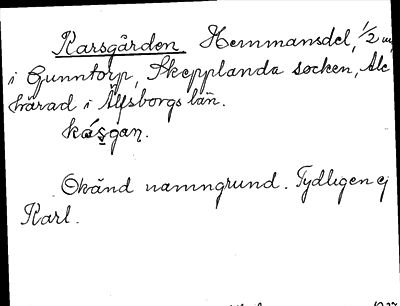 Karsgården Hemmansdel, 1/2 m,
i Gunntorp, Skepplanda socken, Ale
härad i Älfsborgs län.
kásgan.
Okänd namngrund. Tydligen ej
Karl.